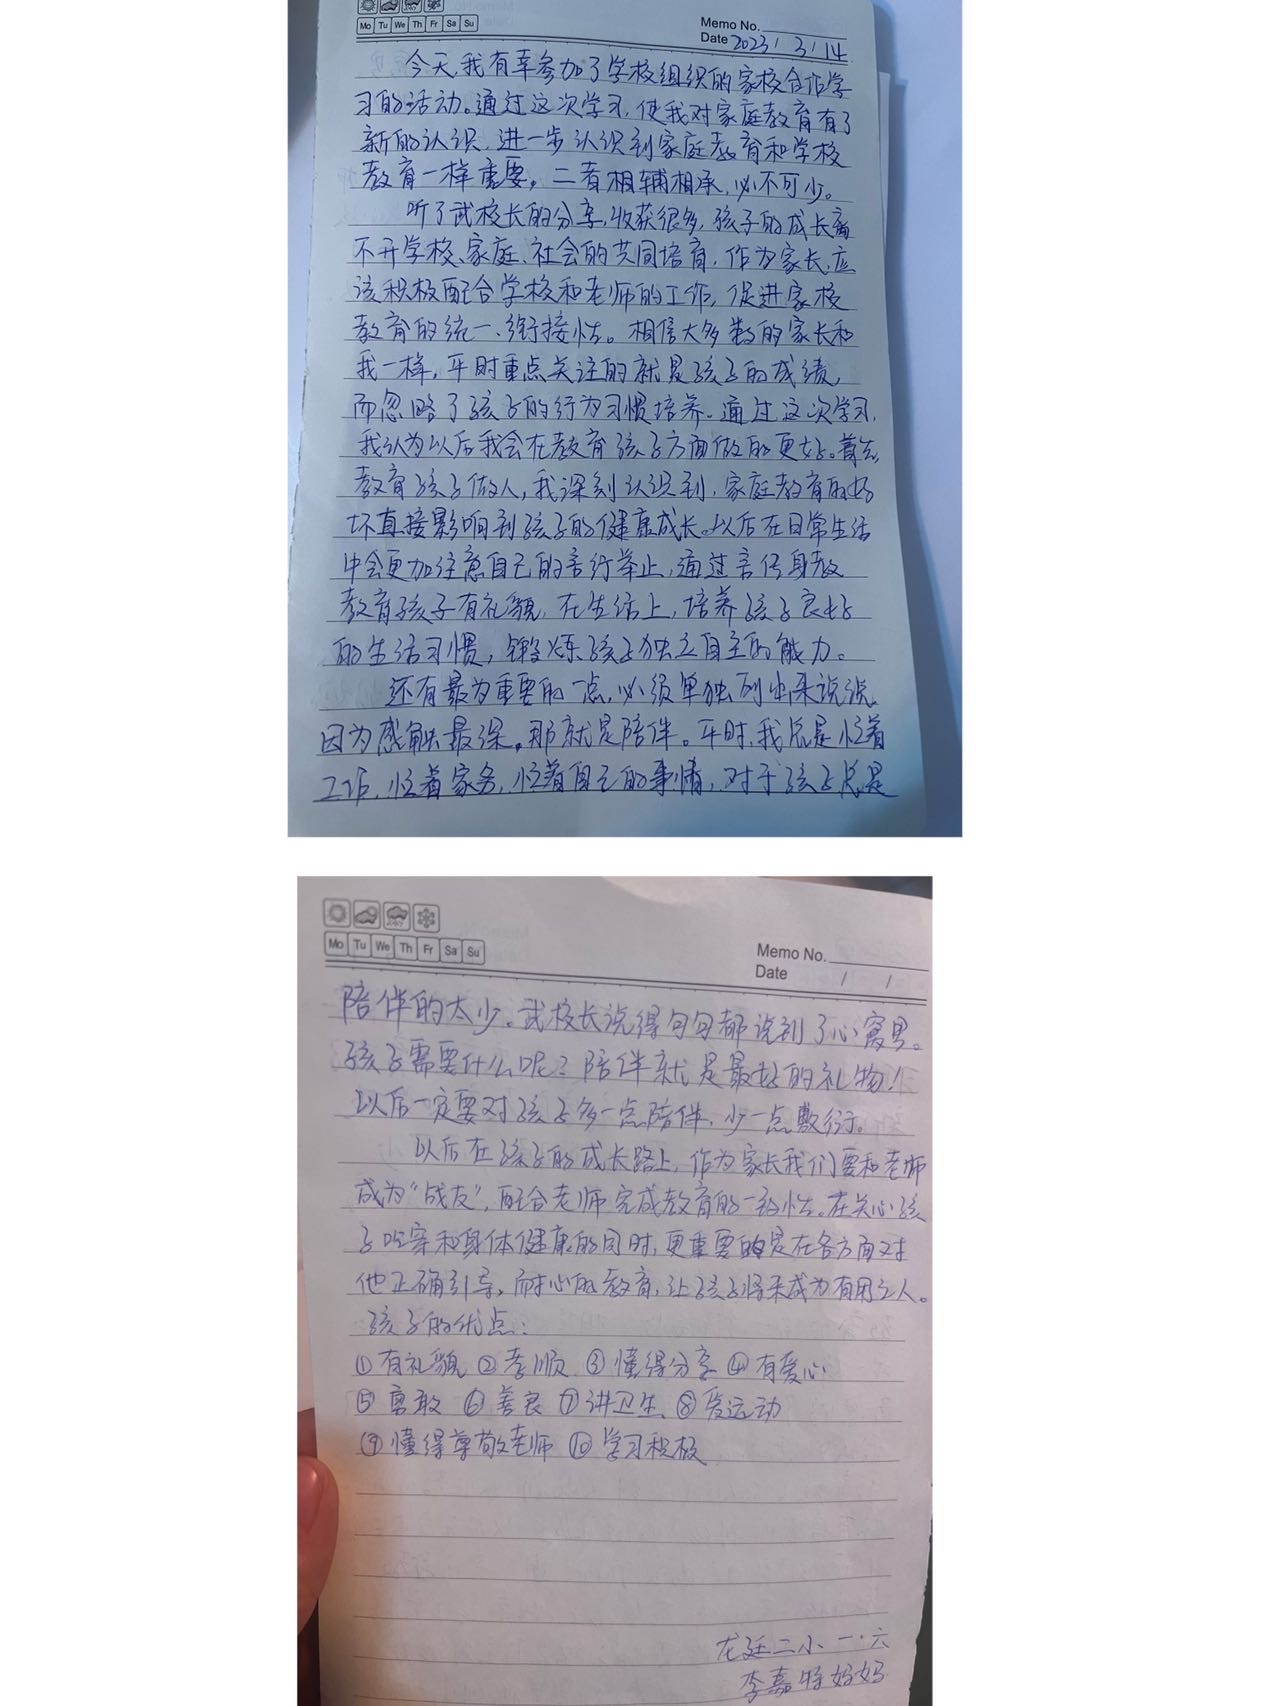 Mo Tu We Th Fr Sa Su
Memo No.
Date 2023/3/14
今天,我有幸参加了学校组织的家校合作学
习的活动。通过这次学习,使我对家庭教育有了
新的认识,进一步认识到家庭教育和学校
教育一样重要。二者相辅相承,必不可少。
听了武校长的分享,收获很多,孩子的成长离
不开学校、家庭、社会的共同培育,作为家长,应
该积极配合学校和老师的工作,促进家校
教育的统一、衔接性。相信大多数的家长和
我一样,平时重点关注的就是孩子的成绩,
而忽略了孩子的行为习惯培养。通过这次学习,
我认为以后我会在教育孩子方面做的更好。首先,
教育孩子做人,我深刻认识到,家庭教育的好
坏直接影响到孩子的健康成长。以后在日常生活
中会更加注意自己的言行举止,通过言传身教
教育孩子有礼貌,在生活上,培养孩子良好
的生活习惯,锻炼孩子独立自主的能力。
还有最为重要的一点,必须单独列出来说说,
因为感触最深。那就是陪伴。平时,我总是忙着
工作,忙着家务,忙着自己的事情,对于孩子总是
Mo Tu We Th Fr Sa Su
Memo No.
Date / /
陪伴的太少。武校长说得句句都说到了心窝里。
孩子需要什么呢?陪伴就是最好的礼物!
以后一定要对孩子多一点陪伴,少一点敷衍。
以后在孩子的成长路上,作为家长我们要和老师
成为“战友”,配合老师完成教育的一致性。在关心孩
子吃穿和身体健康的同时,更重要的是在各方面对
他正确引导,耐心的教育,让孩子将来成为有用之人。
孩子的优点:
①有礼貌 ②孝顺 ③懂得分享 ④有爱心
⑤勇敢 ⑥善良 ⑦讲卫生 ⑧爱运动
⑨懂得尊敬老师 ⑩学习积极
龙廷二小 一·六
李嘉特妈妈